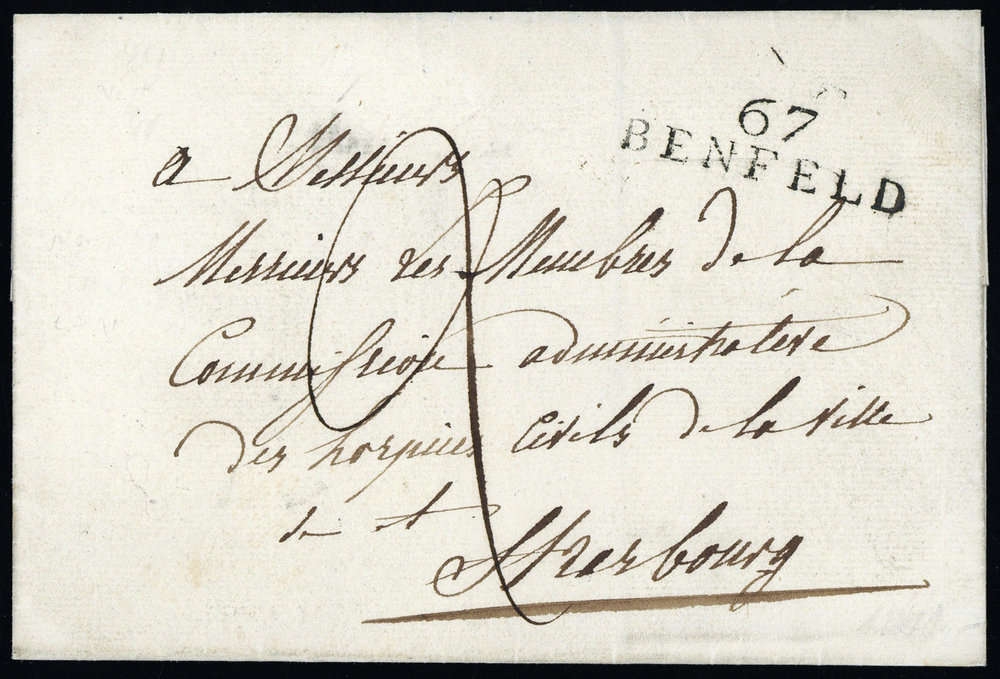 67
BENFELD
a Messieurs
Messieurs les Membres de la
Commission administrative
des hospices civils de la ville
de
Strasbourg